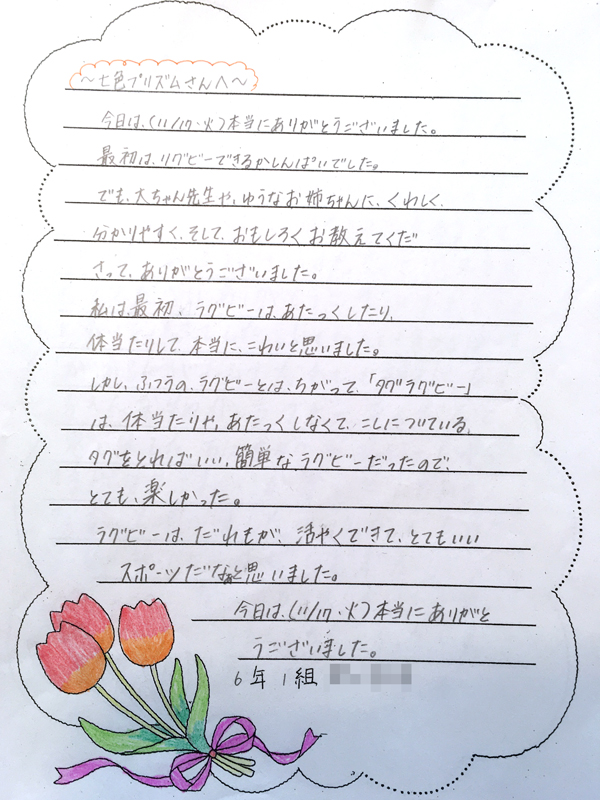 ～七色プリズムさんへ～
今日は、(11/17・火)本当にありがとうございました。
最初は、リグビーできるかしんぱいでした。
でも、大ちゃん先生や、ゆうなお姉ちゃんに、くわしく、
分かりやすく、そして、おもしろくお教えてくだ
さって、ありがとうございました。
私は、最初、ラグビーは、あたっくしたり、
体当たりして、本当に、こわいと思いました。
しかし、ふつうの、ラグビーとは、ちがって、「タグラグビー」
は、体当たりや、あたっくしなくて、こしにづいている、
タグをとればいい、簡単なラグビーだったので、
とても、楽しかった。
ラグビーは、だれもが、活やくできて、とてもいい
スポーツだなぁと思いました。
今日は、(11/17・火)本当にありがと
うございました。
6年1組